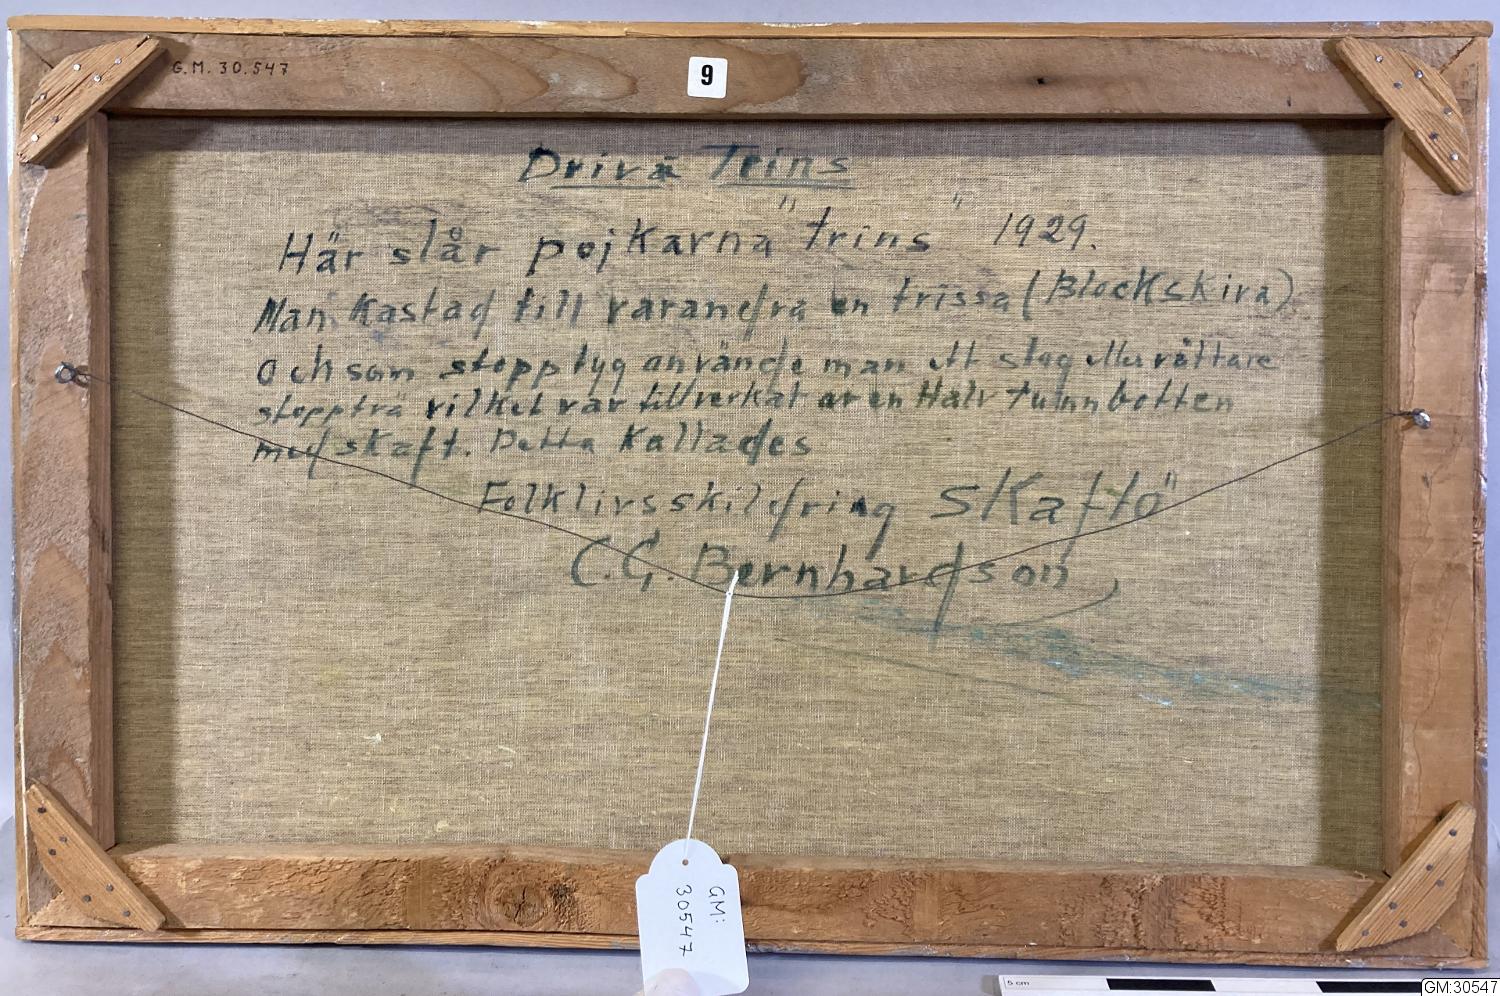 G.M. 30.547
9
Drivä Trins
Här slår pojkarna "trins" 1929.
Man kastad till varandra en trissa (Blockskiva)
och som stopptyg använde man ett slag eller rättare
stoppträ vilket var tillverkat av en Halv tunnbotten
med skaft. Detta kallades
Folklivsskildring Skaftö
C.G. Bernhardson
GM:
30547
5 cm
GM:30547